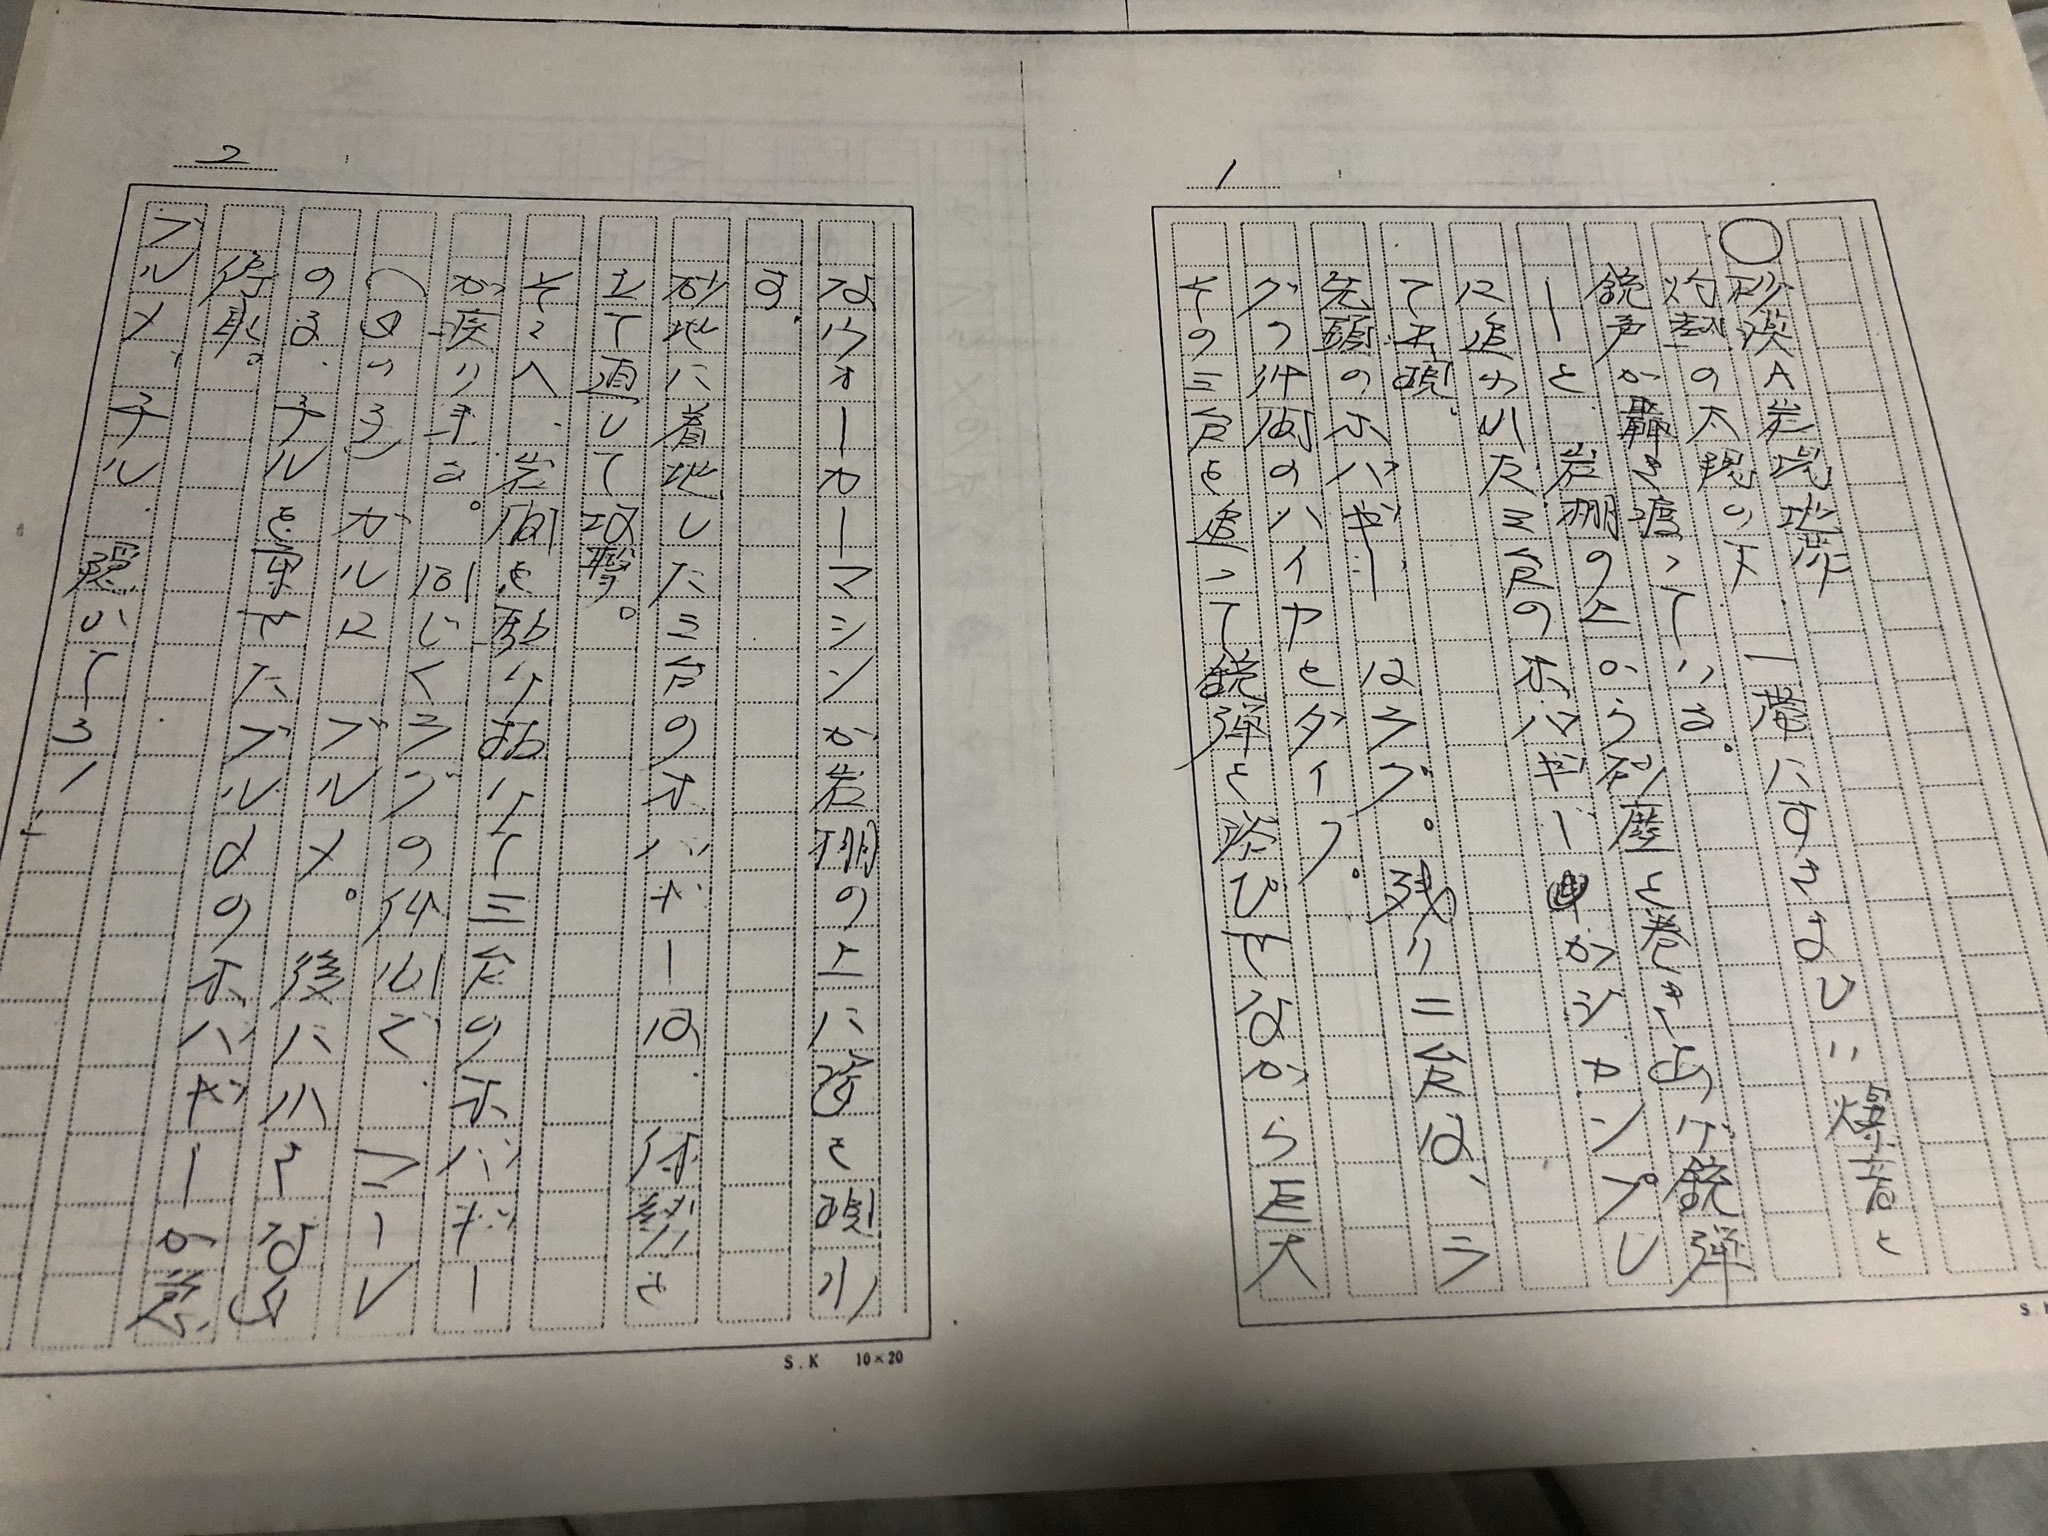 1
○砂漠A岩場地帯
灼熱の太陽の下 一帯にすさまじい爆音と
銃声が轟き渡っている。
ーと 岩棚の上から砂塵を巻き上げ銃弾
に追われた三台のホバギーがジャンプし
て出現。
先頭のホバギー はラブ。残り二台は、ラ
グウ仲間のハイヤとダイブ。
その三台を追って銃弾を浴びせながら巨大
S.K
2
なウォーカーマシンが岩棚の上に姿を現わ
す。
砂地に着地した三台のホバギーは 体勢を
立て直して攻撃。
そこへ、岩間を駆りおりて三台のホバギー
が戻り来る。同じくラグの仲間で マーレ
(女の子) ガルロ ブルメ。後ニハさな女
の子、チルを乗せたブルメのホバギーが急
停車。
ブルメ、チル 隠れてろ!」
S.K 10×20